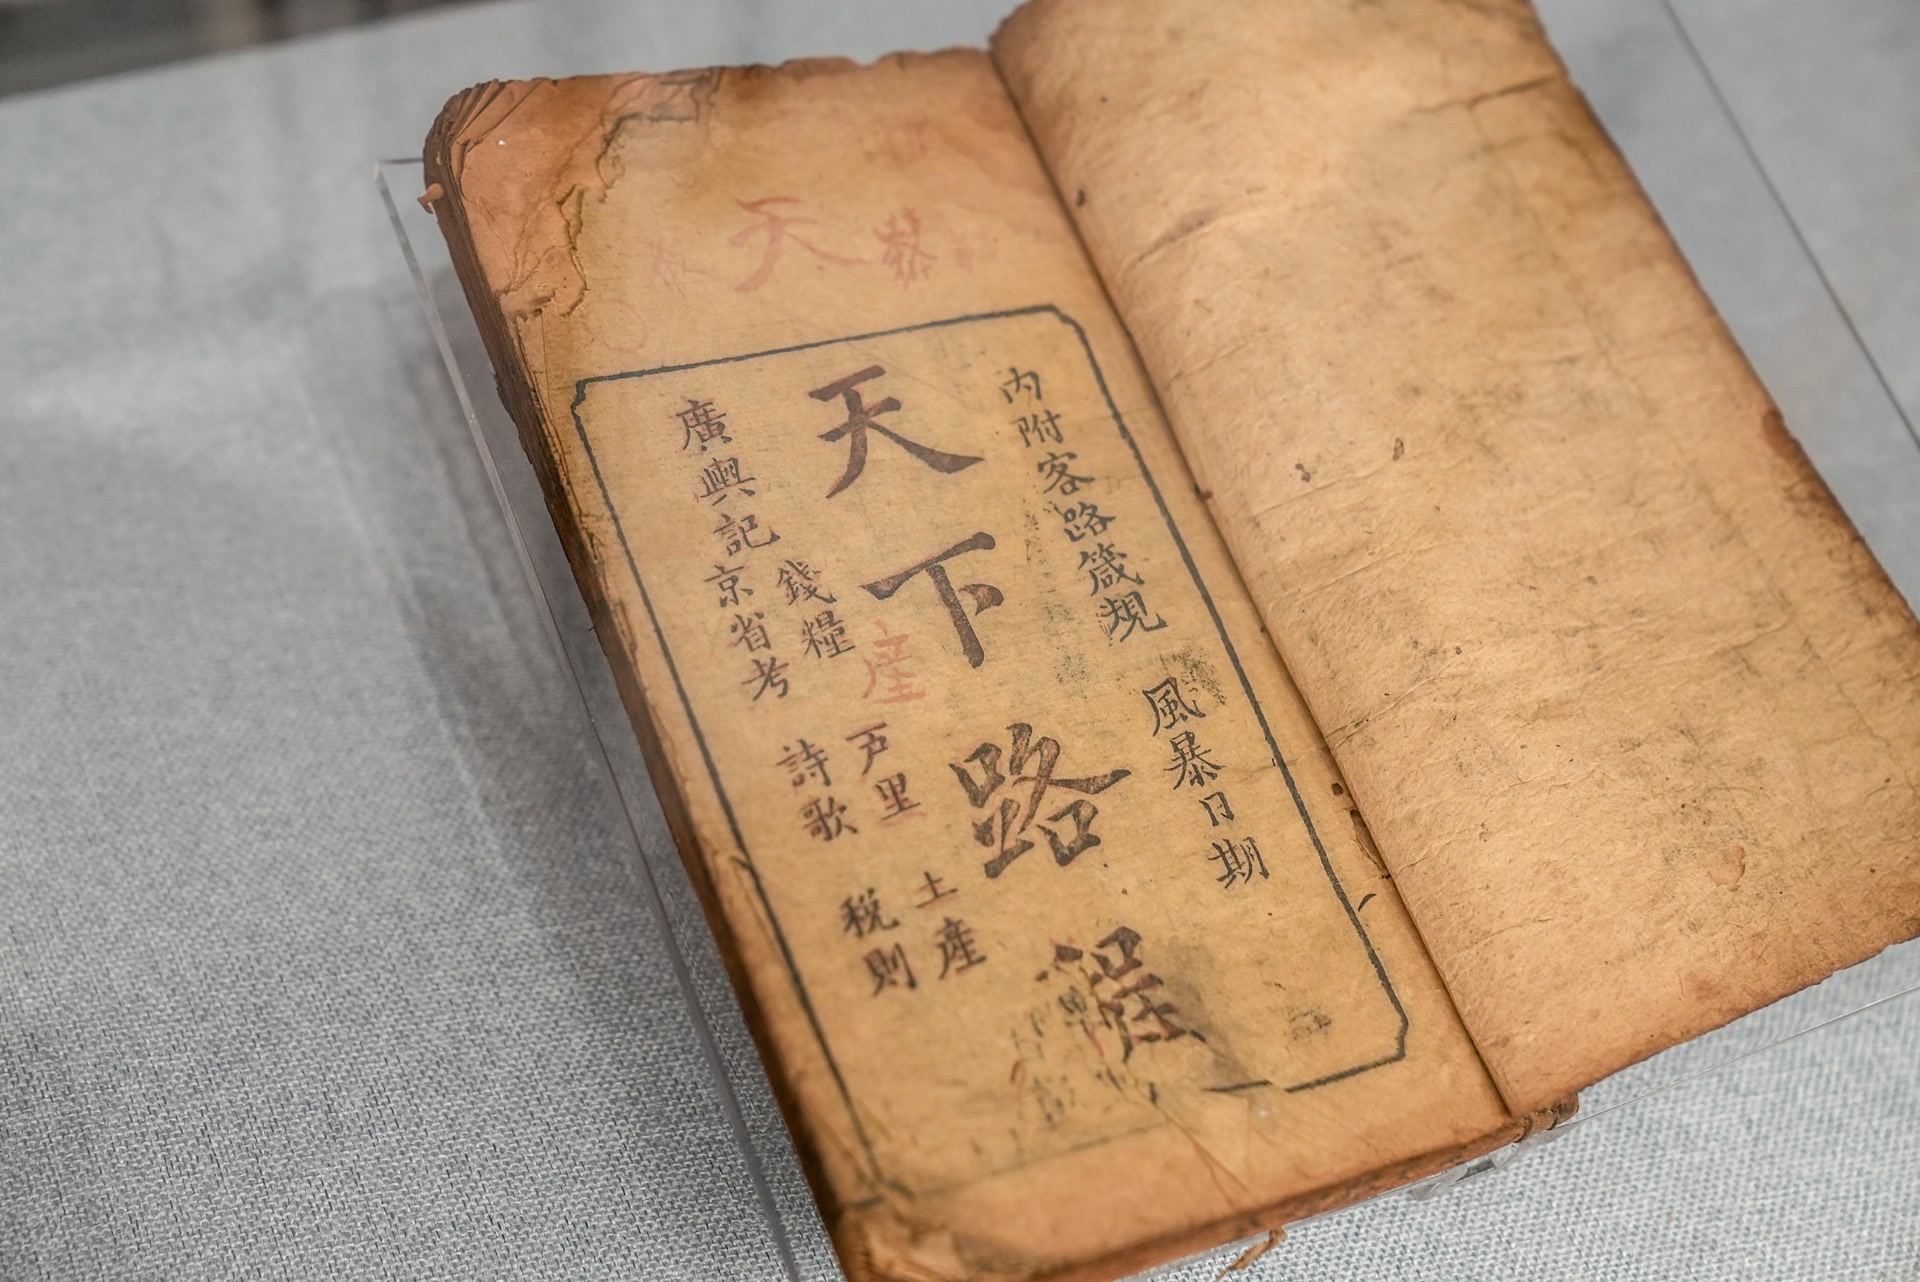 内附客路箴規 風暴日期
天下路程
廣輿記京省考 錢糧 詩歌 戶里 稅則 土產
天
産